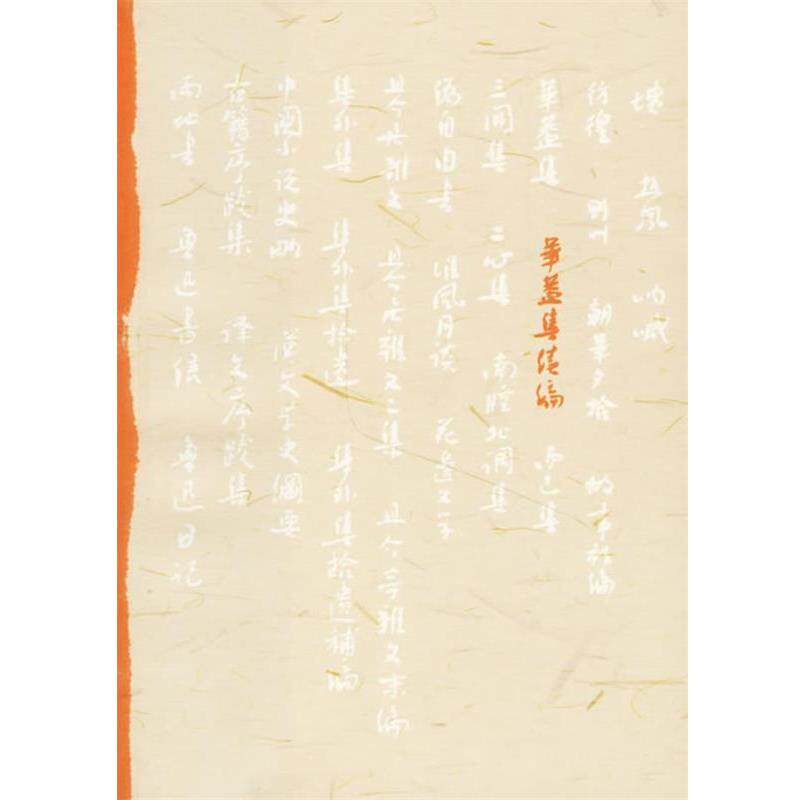 墳 热風 呐喊
彷徨 野草 朝華夕拾 故事新編
華蓋集 華蓋集續編 而已集
三閒集 二心集 南腔北調集
偽自由書 准風月談 花邊文学
且介亭雜文 且介亭雜文二集 且介亭雜文末編
集外集 集外集拾遺 集外集拾遺補編
中國小說史略 漢文学史綱要
古籍序跋集 譯文序跋集
兩地書 魯迅書信 魯迅日記